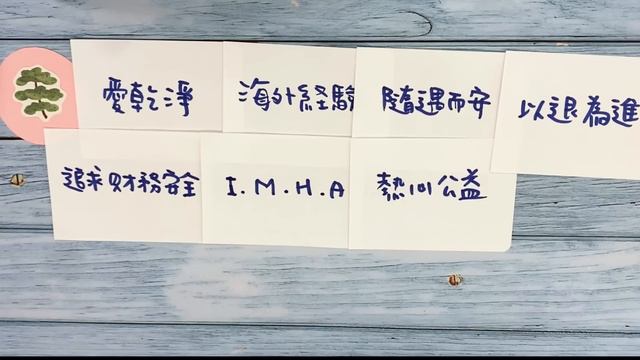 愛乾淨
海外経驗
隨遇而安
以退為進
追求財務安全
I.M.H.A
熱心公益